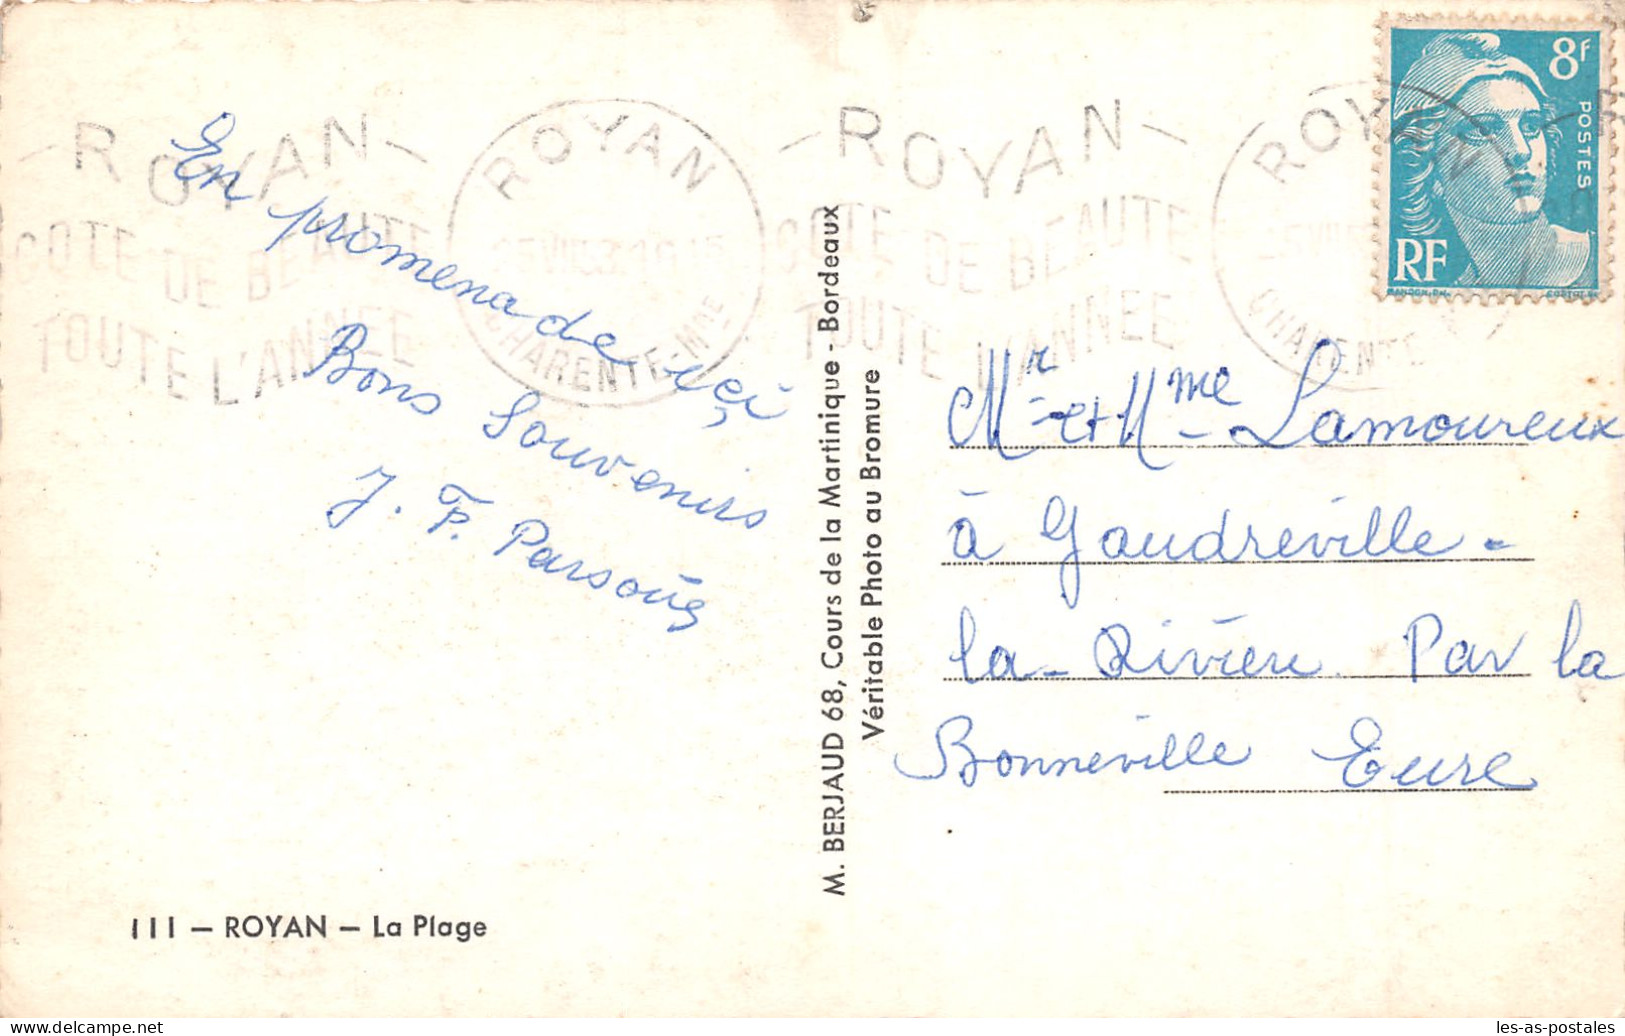 — ROYAN —
COTE DE BEAUTE
TOUTE L'ANNEE
ROYAN
CHARENTE-Mme
— ROYAN —
COTE DE BEAUTE
TOUTE L'ANNEE
ROYAN
CHARENTE
8F
POSTES
RF
En promenade ici
Bons Souvenirs
J. P.
M. BERJAUD 68, Cours de la Martinique - Bordeaux
Véritable Photo au Bromure
Mr et Mme Lamoureux
à Gaudreville-
la-Rivière Par la
Bonneville Eure
111 — ROYAN — La Plage
les-as-postales